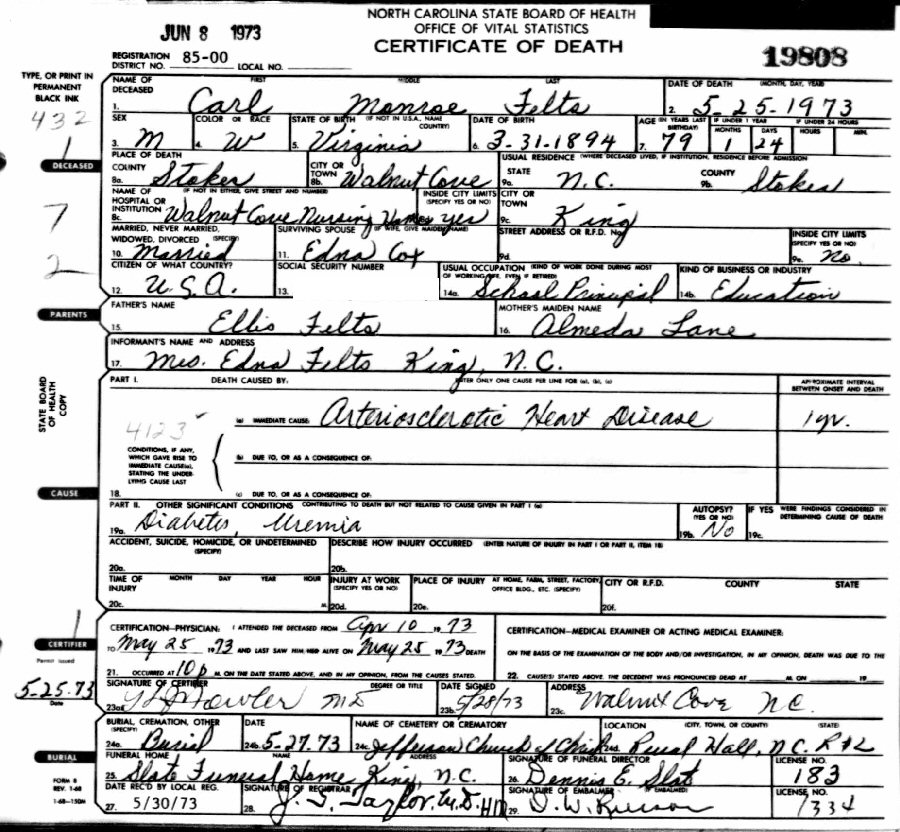 JUN 8 1973
NORTH CAROLINA STATE BOARD OF HEALTH
OFFICE OF VITAL STATISTICS
CERTIFICATE OF DEATH
19808
REGISTRATION DISTRICT NO. 85-00 LOCAL NO.
TYPE, OR PRINT IN PERMANENT BLACK INK
432
1
DECEASED
7
2
PARENTS
STATE BOARD OF HEALTH COPY
CAUSE
1
CERTIFIER
Permit issued
5-25-73
Date
BURIAL
FORM 8
REV. 1-68
1-68-150M
NAME OF DECEASED FIRST MIDDLE LAST
1. Carl Monroe Felts
DATE OF DEATH (MONTH, DAY, YEAR)
2. 5-25-1973
SEX
3. M
COLOR OR RACE
4. W
STATE OF BIRTH (IF NOT IN U.S.A., NAME COUNTRY)
5. Virginia
DATE OF BIRTH
6. 3-31-1894
AGE (IN YEARS LAST BIRTHDAY) IF UNDER 1 YEAR IF UNDER 24 HOURS
MONTHS DAYS HOURS MIN.
7. 79 1 24
PLACE OF DEATH
COUNTY
8a. Stokes
CITY OR TOWN
8b. Walnut Cove
USUAL RESIDENCE (WHERE DECEASED LIVED, IF INSTITUTION, RESIDENCE BEFORE ADMISSION
STATE
9a. N.C.
COUNTY
9b. Stokes
NAME OF (IF NOT IN EITHER, GIVE STREET AND NUMBER)
HOSPITAL OR INSTITUTION
8c. Walnut Cove Nursing Home
INSIDE CITY LIMITS (SPECIFY YES OR NO)
yes
CITY OR TOWN
9c. King
MARRIED, NEVER MARRIED, WIDOWED, DIVORCED (SPECIFY)
10. Married
SURVIVING SPOUSE (IF WIFE, GIVE MAIDEN NAME)
11. Edna Cox
STREET ADDRESS OR R.F.D. No.
9d.
INSIDE CITY LIMITS (SPECIFY YES OR NO)
9e. No
CITIZEN OF WHAT COUNTRY?
12. U.S.A.
SOCIAL SECURITY NUMBER
13.
USUAL OCCUPATION (KIND OF WORK DONE DURING MOST OF WORKING LIFE, EVEN IF RETIRED)
14a. School Principal
KIND OF BUSINESS OR INDUSTRY
14b. Education
FATHER'S NAME
15. Ellis Felts
MOTHER'S MAIDEN NAME
16. Almeda Lane
INFORMANT'S NAME AND ADDRESS
17. Mrs. Edna Felts King, N.C.
PART I. DEATH CAUSED BY: ENTER ONLY ONE CAUSE PER LINE FOR (a), (b), (c)
APPROXIMATE INTERVAL BETWEEN ONSET AND DEATH
(a) IMMEDIATE CAUSE Arteriosclerotic Heart Disease 1 yr.
4123
CONDITIONS, IF ANY, WHICH GAVE RISE TO IMMEDIATE CAUSE(a), STATING THE UNDERLYING CAUSE LAST
(b) DUE TO, OR AS A CONSEQUENCE OF:
18. (c) DUE TO, OR AS A CONSEQUENCE OF:
PART II. OTHER SIGNIFICANT CONDITIONS CONTRIBUTING TO DEATH BUT NOT RELATED TO CAUSE GIVEN IN PART I (a)
19a. Diabetes, Uremia
AUTOPSY? (YES OR NO)
19b. No
IF YES WERE FINDINGS CONSIDERED IN DETERMINING CAUSE OF DEATH
19c.
ACCIDENT, SUICIDE, HOMICIDE, OR UNDETERMINED (SPECIFY)
20a.
DESCRIBE HOW INJURY OCCURRED (ENTER NATURE OF INJURY IN PART I OR PART II, ITEM 18)
20b.
TIME OF INJURY MONTH DAY YEAR HOUR
20c. M.
INJURY AT WORK (SPECIFY YES OR NO)
20d.
PLACE OF INJURY AT HOME, FARM, STREET, FACTORY, OFFICE BLDG., ETC. (SPECIFY)
20e.
CITY OR R.F.D. COUNTY STATE
20f.
CERTIFICATION-PHYSICIAN: I ATTENDED THE DECEASED FROM Apr 10 1973
TO May 25 1973 AND LAST SAW HIM/HER ALIVE ON May 25 1973 DEATH
21. OCCURRED AT 10 p M. ON THE DATE STATED ABOVE, AND IN MY OPINION, FROM THE CAUSES STATED.
CERTIFICATION-MEDICAL EXAMINER OR ACTING MEDICAL EXAMINER:
ON THE BASIS OF THE EXAMINATION OF THE BODY AND/OR INVESTIGATION, IN MY OPINION, DEATH WAS DUE TO THE
22. CAUSE(S) STATED ABOVE. THE DECEDENT WAS PRONOUNCED DEAD AT M. ON 19
SIGNATURE OF CERTIFIER DEGREE OR TITLE
23a. Fowler MD
DATE SIGNED
23b. 5/28/73
ADDRESS
23c. Walnut Cove N.C.
BURIAL, CREMATION, OTHER (SPECIFY)
24a. Burial
DATE
24b. 5-27-73
NAME OF CEMETERY OR CREMATORY
24c. Jefferson Church of Christ
LOCATION (CITY, TOWN, OR COUNTY) (STATE)
24d. Rural Hall, N.C. R#2
FUNERAL HOME NAME ADDRESS
25. Slate Funeral Home King, N.C.
SIGNATURE OF FUNERAL DIRECTOR
26. Dennis E. Slate
LICENSE NO.
183
DATE REC'D BY LOCAL REG.
27. 5/30/73
SIGNATURE OF REGISTRAR
28. Taylor, M.D.
SIGNATURE OF EMBALMER (IF EMBALMED)
29.
LICENSE NO.
1334